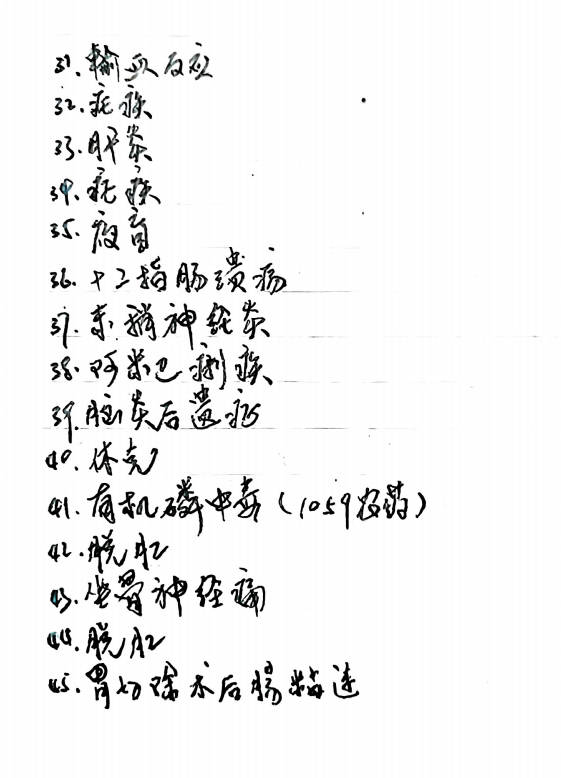 31.输血反应
32.疟疾
33.肝炎
34.疟疾
35.夜盲
36.十二指肠溃疡
37.末稍神经炎
38.阿米巴痢疾
39.脑炎后遗症
40.休克
41.有机磷中毒(1059农药)
42.脱肛
43.坐骨神经痛
44.脱肛
45.胃切除术后肠粘连